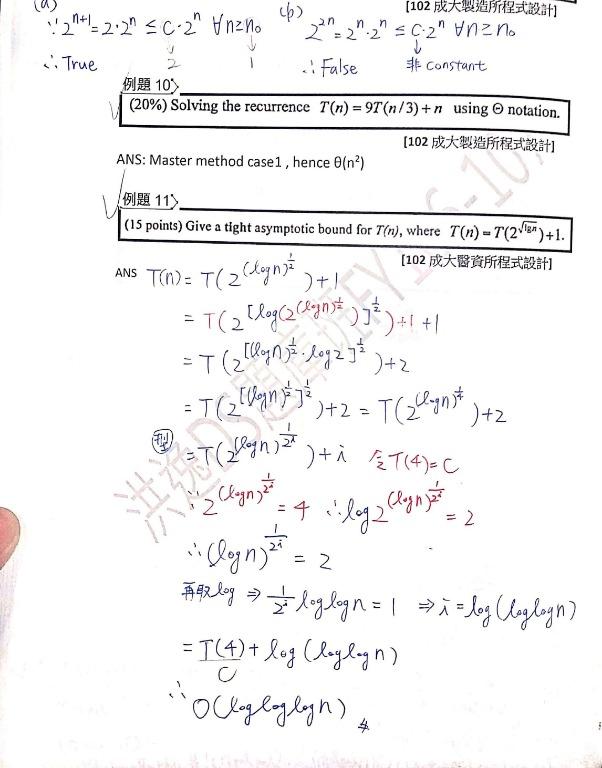 (a)
∵ 2^{n+1} = 2·2^n ≤ C·2^n ∀n≥n₀
2 1
∴ True
(b) [102 成大製造所程式設計]
2^{2n} = 2^n·2^n ≤ C·2^n ∀n≥n₀
∴ False 非 constant
例題 10
(20%) Solving the recurrence T(n) = 9T(n/3) + n using Θ notation.
[102 成大製造所程式設計]
ANS: Master method case1 , hence θ(n²)
例題 11
(15 points) Give a tight asymptotic bound for T(n), where T(n) = T(2^{√lg n})+1.
[102 成大醫資所程式設計]
ANS T(n) = T(2^{(log n)^{1/2}})+1
= T(2^{[log(2^{(log n)^{1/2}})]^{1/2}})+1+1
= T(2^{[(log n)^{1/2}·log2]^{1/2}})+2
= T(2^{[(log n)^{1/2}]^{1/2}})+2 = T(2^{(log n)^{1/4}})+2
型 = T(2^{(log n)^{1/2^i}})+i 令T(4)=C
∵ 2^{(log n)^{1/2^i}} = 4 ∴ log2^{(log n)^{1/2^i}} = 2
∴ (log n)^{1/2^i} = 2
再取log ⇒ 1/2^i loglog n = 1 ⇒ i = log(loglog n)
= T(4) + log(loglog n)
C
∴ O(logloglog n)